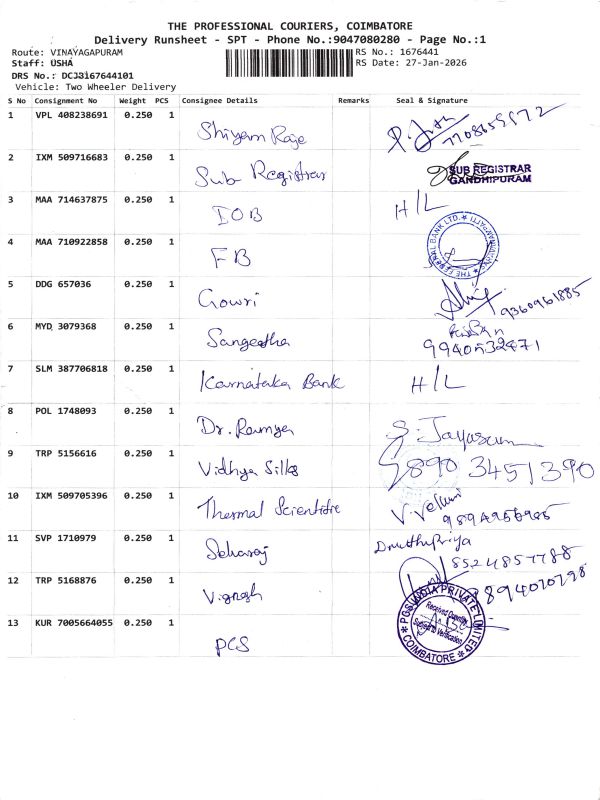 THE PROFESSIONAL COURIERS, COIMBATORE
Delivery Runsheet - SPT - Phone No.:9047080280 - Page No.:1
Route: VINAYAGAPURAM
RS No.: 1676441
Staff: USHA
RS Date: 27-Jan-2026
DRS No.: DCJ3167644101
Vehicle: Two Wheeler Delivery
S No Consignment No Weight PCS Consignee Details Remarks Seal & Signature
1 VPL 408238691 0.250 1 Shiyam Raje
2 IXM 509716683 0.250 1 Sub Registrar SUB REGISTRAR
GANDHIPURAM
3 MAA 714637875 0.250 1 IOB H/L
4 MAA 710922858 0.250 1 FB
5 DDG 657036 0.250 1 Gowri 9360961885
6 MYD 3079368 0.250 1 Sangeetha
7 SLM 387706818 0.250 1 Karnataka Bank H/L
8 POL 1748093 0.250 1 Dr. Ramya
9 TRP 5156616 0.250 1 Vidhya Silks 890 3451390
10 IXM 509705396 0.250 1 Thermal Scientific
11 SVP 1710979 0.250 1
8524857788
12 TRP 5168876 0.250 1 Vignesh
13 KUR 7005664055 0.250 1 PCS PGS INDIA PRIVATE LIMITED
Received Quantity
Subject to Verification
COIMBATORE